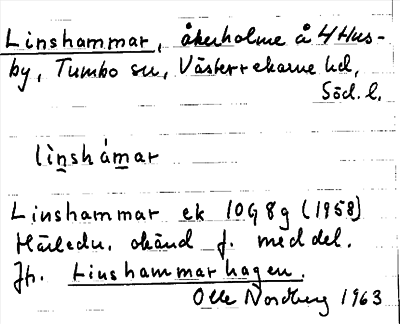 Linshammar, åkerholme å 4 Hus-
by, Tumbo sn, Västerrekarne hd,
Söd. l.
lìnshámar
Linshammar ek 10G 8g (1958)
Härledn. okänd f. meddel.
Jfr. Linshammarhagen.
Olle Nordberg 1963